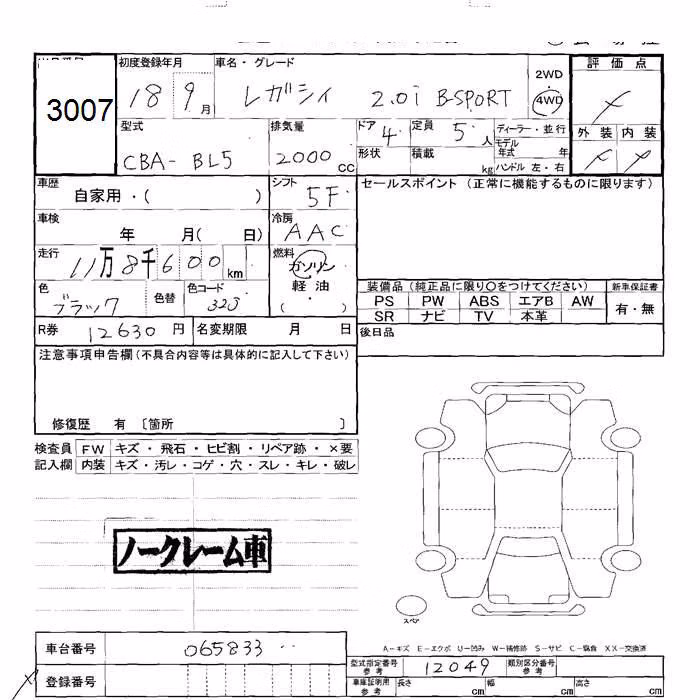 3007
初度登録年月 車名・グレード 評価点
18 9月 レガシィ 2.0i B-SPORT 2WD 4WD
外装 内装
型式 排気量 ドア 4 定員 5人 ディーラー・並行
モデル年式 年
CBA-BL5 2000cc 形状 積載 kg ハンドル 左・右
車歴 シフト セールスポイント (正常に機能するものに限ります)
自家用・( ) 5F
車検 冷房
年 月( 日) AAC
走行 燃料
11万8千600km ガソリン
軽油
( ・ )
色 色替 色コード 装備品 (純正品に限り○をつけてください) 新車保証書
ブラック 32J PS PW ABS エアB AW 有・無
SR ナビ TV 本革
R券 12630円 名変期限 月 日 後日品
注意事項申告欄(不具合内容等は具体的に記入して下さい)
修復歴 有 〔箇所 〕
検査員 FW キズ・飛石・ヒビ割・リペア跡・×要
記入欄 内装 キズ・汚レ・コゲ・穴・スレ・キレ・破レ
ノークレーム車
スペア
A-キズ E-エクボ U-凹み W-補修跡 S-サビ C-腐食 XX-交換済
車台番号 065833 型式指定番号 参考 12049 類別区分番号 参考
登録番号 車庫証明用 参考 長さ cm 幅 cm 高さ cm